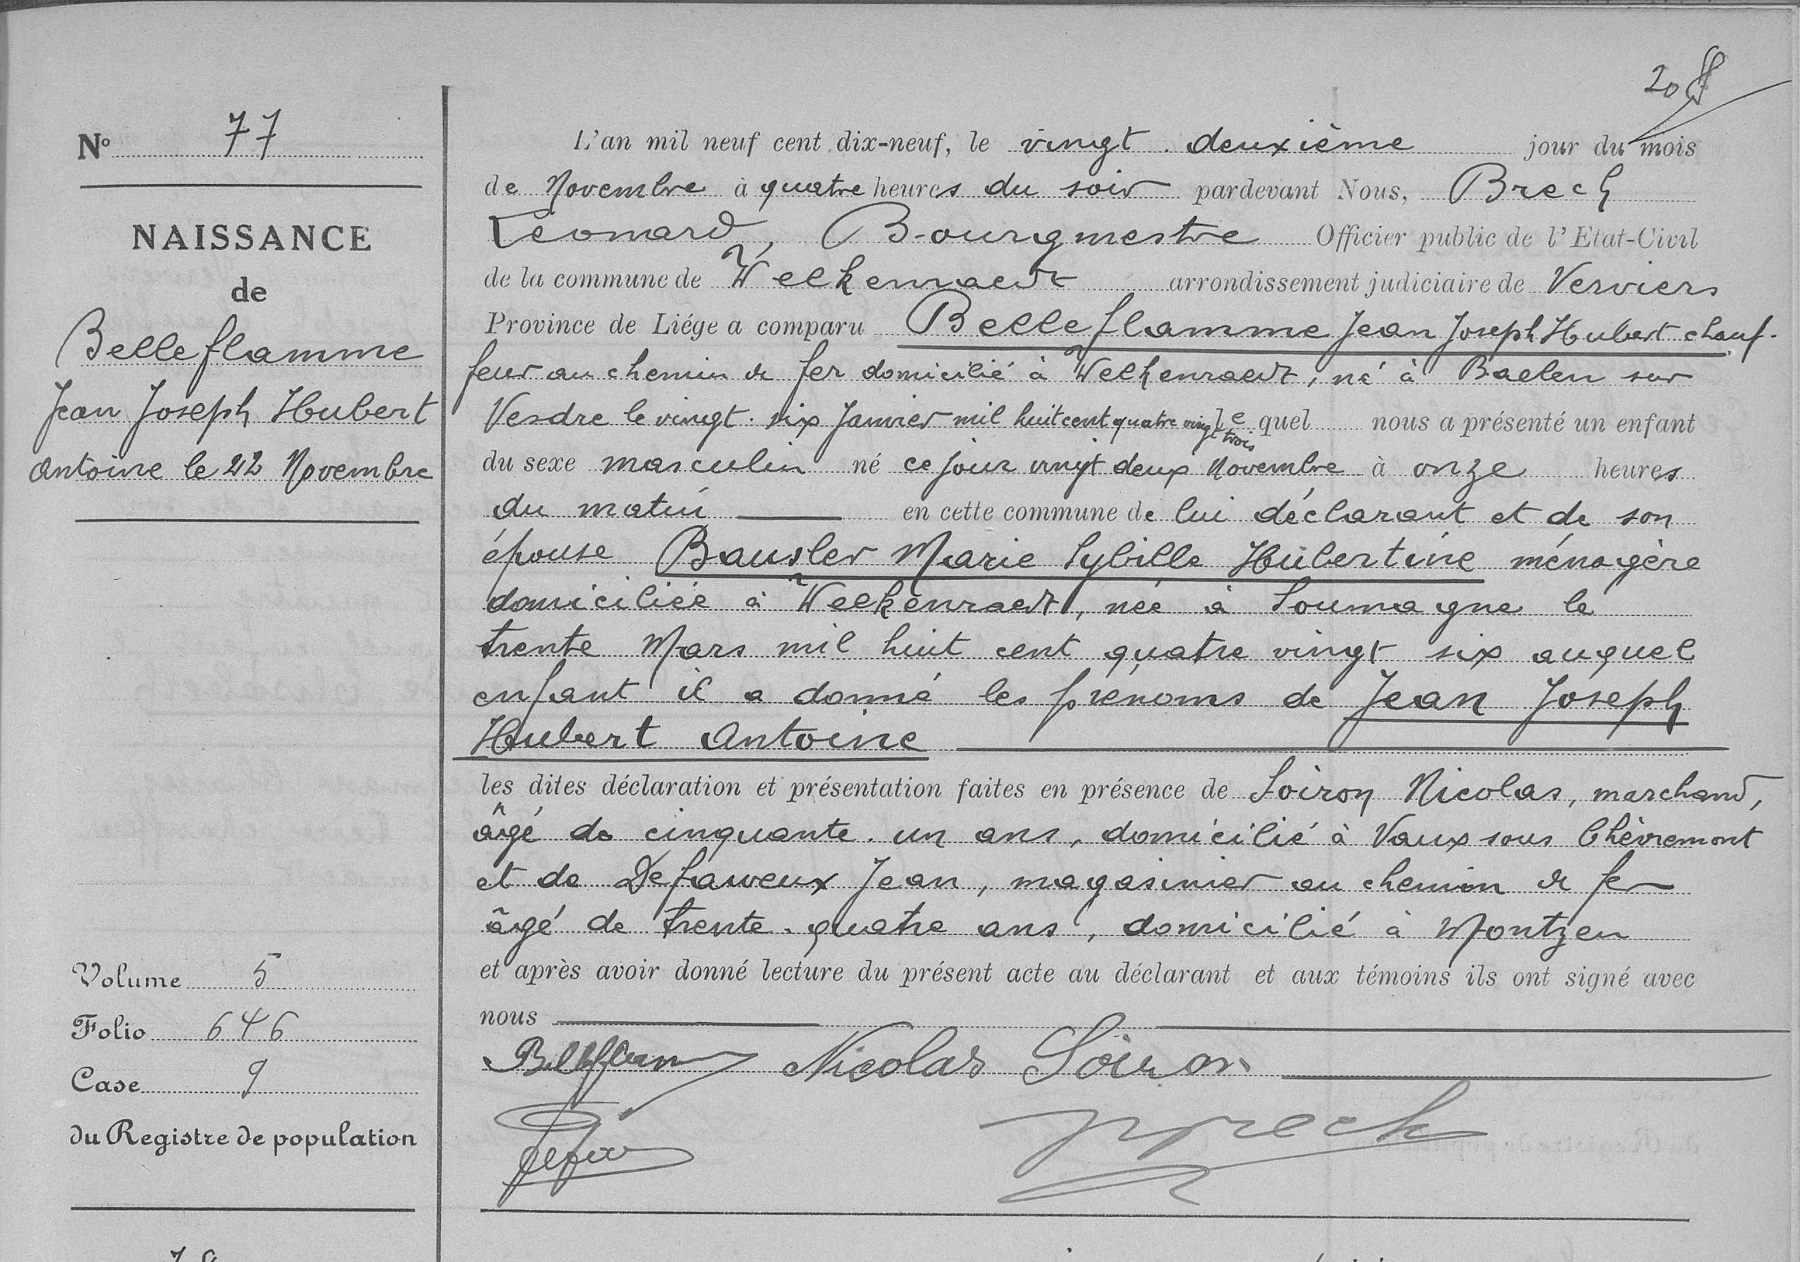 208
N° 77
NAISSANCE
de
Belleflamme
Jean Joseph Hubert
Antoine le 22 Novembre
Volume 5
Folio 646
Case 9
du Registre de population
L'an mil neuf cent dix-neuf, le vingt deuxième jour du mois
de Novembre à quatre heures du soir pardevant Nous, Brech
Léonard, Bourgmestre Officier public de l'Etat-Civil
de la commune de Welkenraedt arrondissement judiciaire de Verviers
Province de Liége a comparu Belleflamme Jean Joseph Hubert chauf-
feur au chemin de fer domicilié à Welkenraedt, né à Baelen sur
Vesdre le vingt-six Janvier mil huit cent quatre vingt trois lequel nous a présenté un enfant
du sexe masculin né ce jour vingt deux Novembre à onze heures
du matin en cette commune de lui déclarant et de son
épouse Bausler Marie Sybille Hubertine ménagère
domiciliée à Welkenraedt, née à Soumagne le
trente Mars mil huit cent quatre vingt six auquel
enfant il a donné les prénoms de Jean Joseph
Hubert Antoine
les dites déclaration et présentation faites en présence de Soiron Nicolas, marchand,
âgé de cinquante-un ans, domicilié à Vaux sous Chèvremont
et de Defaweux Jean, magasinier au chemin de fer
âgé de trente-quatre ans, domicilié à Montzen
et après avoir donné lecture du présent acte au déclarant et aux témoins ils ont signé avec
nous
Belleflamme Nicolas Soiron
Brech